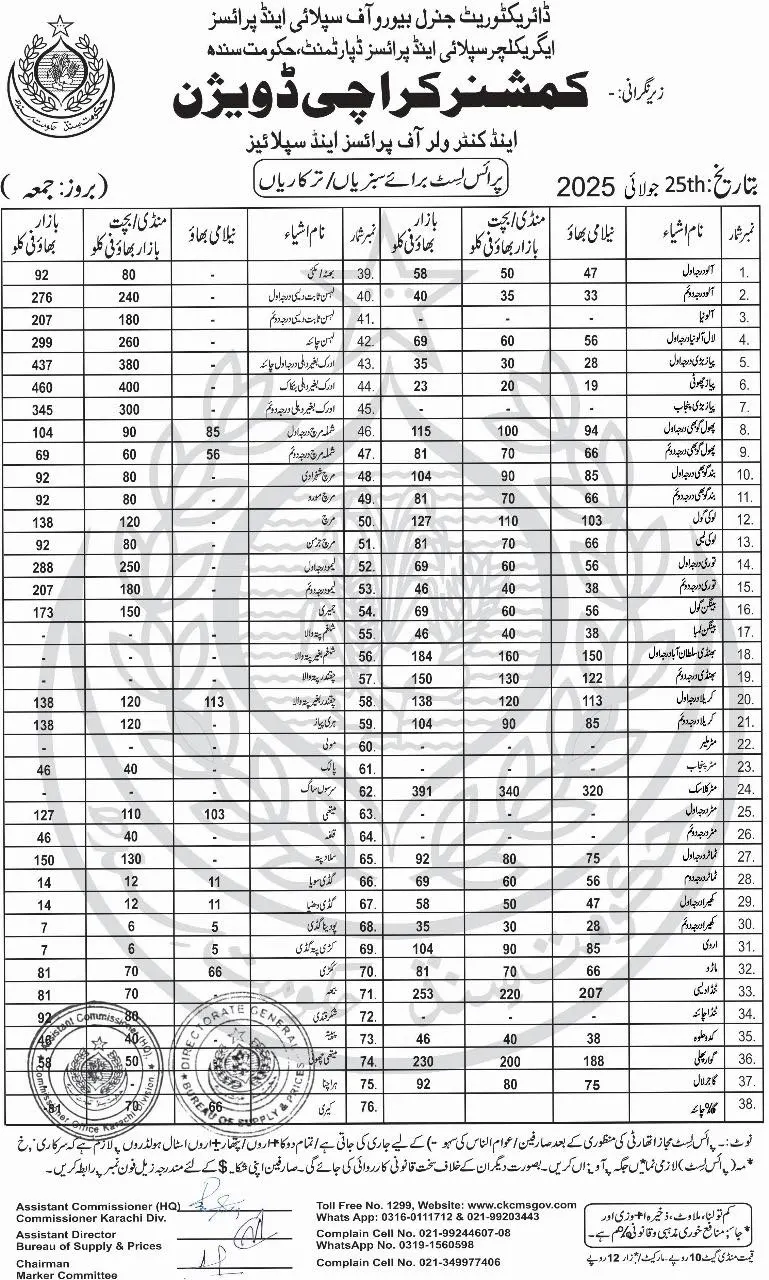 ڈائریکٹوریٹ جنرل بیورو آف سپلائی اینڈ پرائسز
ایگریکلچر سپلائی اینڈ پرائسز ڈپارٹمنٹ، حکومت سندھ
زیر نگرانی: -
کمشنر کراچی ڈویژن
اینڈ کنٹرولر آف پرائسز اینڈ سپلائیز
تاریخ: 25th جولائی 2025
پرائس لسٹ برائے سبزیاں/ترکاریاں
(بروز: جمعہ)
نمبر شمار نام اشیاء نیلامی بھاؤ منڈی/بچت بازار بھاؤ فی کلو بازار بھاؤ فی کلو
1. آلو درجہ اول 47 50 58
2. آلو درجہ دوئم 33 35 40
3. آلو نیا - - -
4. لال آلو نیا درجہ اول 56 60 69
5. پیاز بڑی درجہ اول 28 30 35
6. پیاز چھوٹی 19 20 23
7. پیاز بڑی پنجاب - - -
8. پھول گوبھی درجہ اول 94 100 115
9. پھول گوبھی درجہ دوئم 66 70 81
10. بند گوبھی درجہ اول 85 90 104
11. بند گوبھی درجہ دوئم 66 70 81
12. لوکی گول 103 110 127
13. لوکی لمبی 66 70 81
14. توری درجہ اول 56 60 69
15. توری درجہ دوئم 38 40 46
16. بینگن گول 56 60 69
17. بینگن لمبا 38 40 46
18. بھنڈی سلطان آباد درجہ اول 150 160 184
19. بھنڈی درجہ دوئم 122 130 150
20. کریلا درجہ اول 113 120 138
21. کریلا درجہ دوئم 85 90 104
22. مٹر ملیر - - -
23. مٹر پنجاب - - -
24. مٹر کلاسک 320 340 391
25. مٹر درجہ اول - - -
26. مٹر درجہ دوئم - - -
27. ٹماٹر درجہ اول 75 80 92
28. ٹماٹر درجہ دوم 56 60 69
29. کھیرا درجہ اول 47 50 58
30. کھیرا درجہ دوئم 28 30 35
31. اروی 85 90 104
32. ماڑو 66 70 81
33. ٹنڈا دیسی 207 220 253
34. ٹنڈا چائنہ - - -
35. کدو حلوہ 38 40 46
36. گوار پھلی 188 200 230
37. گاجر لال 75 80 92
38. چائنہ
نمبر شمار نام اشیاء نیلامی بھاؤ منڈی/بچت بازار بھاؤ فی کلو بازار بھاؤ فی کلو
39. - 80 92
40. لہسن ثابت دیسی درجہ اول - 240 276
41. لہسن ثابت دیسی درجہ دوئم - 180 207
42. لہسن چائنہ - 260 299
43. ادرک بغیر دھلی درجہ اول چائنہ - 380 437
44. ادرک بغیر دھلی بنکاک - 400 460
45. ادرک بغیر دھلی درجہ دوئم - 300 345
46. شملہ مرچ درجہ اول 85 90 104
47. شملہ مرچ درجہ دوئم 56 60 69
48. مرچ شہزادی - 80 92
49. مرچ مورو - 80 92
50. مرچ - 120 138
51. مرچ جرمن - 80 92
52. لیمو درجہ اول - 250 288
53. لیمو درجہ دوئم - 180 207
54. جمیری - 150 173
55. شلغم پتہ والا - - -
56. شلغم بغیر پتہ والا - - -
57. چقندر پتہ والا - - -
58. چقندر بغیر پتہ والا 113 120 138
59. ہری پیاز - 120 138
60. مولی - - -
61. پالک - 40 46
62. سرسوں ساگ - - -
63. میتھی 103 110 127
64. - 40 46
65. سلاد پتہ - 130 150
66. گڈی سویا 11 12 14
67. گڈی دھنیا 11 12 14
68. پودینا گڈی 5 6 7
69. کڑی پتہ گڈی 5 6 7
70. ککڑی 66 70 81
71. - 70 81
72. شکر قندی 80 92
73. پپیتہ 40 46
74. میتھی چھوٹی 50 58
75. ہرا چنا
76. کیری 66 70 81
Assistant Commissioner (HQ)
Commissioner Office Karachi Division
DIRECTORATE GENERAL
BUREAU OF SUPPLY & PRICES
نوٹ: - پرائس لسٹ مجاز اتھارٹی کی منظوری کے بعد صارفین/عوام الناس کی کے لیے جاری کی جاتی ہے/تمام اسٹال ہولڈروں پر لازم ہے کہ سرکاری
(پرائس لسٹ) لازمی جگہ پر کریں۔ بصورت دیگر ان کے خلاف سخت قانونی کارروائی کی جائے گی۔ صارفین اپنی کے لئے مندرجہ زیل فون نمبر پر رابطہ کریں۔
Assistant Commissioner (HQ)
Commissioner Karachi Div.
Assistant Director
Bureau of Supply & Prices
Chairman
Marker Committee
Toll Free No. 1299, Website: www.ckcmsgov.com
Whats App: 0316-0111712 & 021-99203443
Complain Cell No. 021-99244607-08
WhatsApp No. 0319-1560598
Complain Cell No. 021-349977406
کم تولنا، ملاوٹ، ذخیرہ اور
منافع خوری مذہبی و قانونی ہے۔
قیمت منڈی گیٹ 10 روپے - مارکیٹ/ 12 روپے